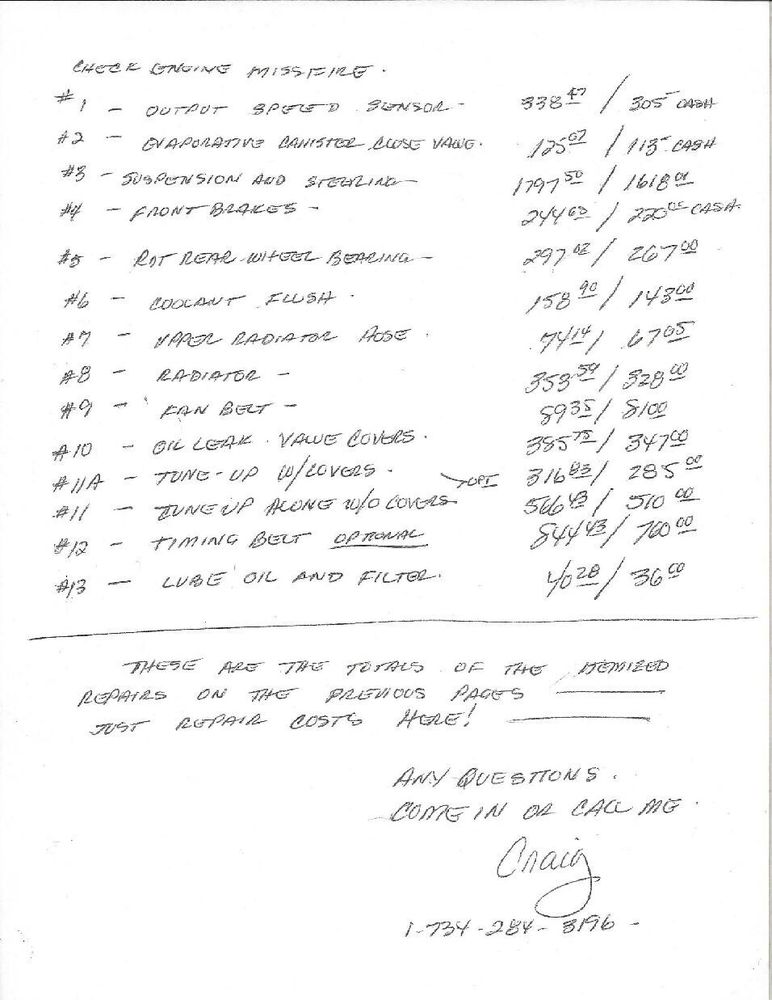 CHECK ENGINE MISSFIRE.
#1 - OUTPUT SPEED SENSOR - 338 47 / 305 - CASH
#2 - EVAPORATIVE CANISTER CLOSE VALVE. 125 07 / 113 - CASH
#3 - SUSPENSION AND STEERING - 1797 50 / 1618 00
#4 - FRONT BRAKES - 244 63 / 220 00 CASH.
#5 - REAR WHEEL BEARING - 297 02 / 267 00
#6 - COOLANT FLUSH. 158 90 / 143 00
#7 - UPPER RADIATOR HOSE. 74 14 / 67 05
#8 - RADIATOR - 353 59 / 328 00
#9 - FAN BELT - 89 35 / 81 00
#10 - OIL LEAK. VALVE COVERS. 385 75 / 347 00
#11A - TUNE-UP W/COVERS. OPT 316 83 / 285 00
#11 - TUNE UP ALONE W/O COVERS 566 43 / 510 00
#12 - TIMING BELT OPTIONAL 844 43 / 760 00
#13 - LUBE OIL AND FILTER. 40 28 / 36 00
THESE ARE THE TOTALS OF THE ITEMIZED
REPAIRS ON THE PREVIOUS PAGES
JUST REPAIR COSTS HERE!
ANY QUESTIONS.
COME IN OR CALL ME.
Craig
1-734-284-3196 -